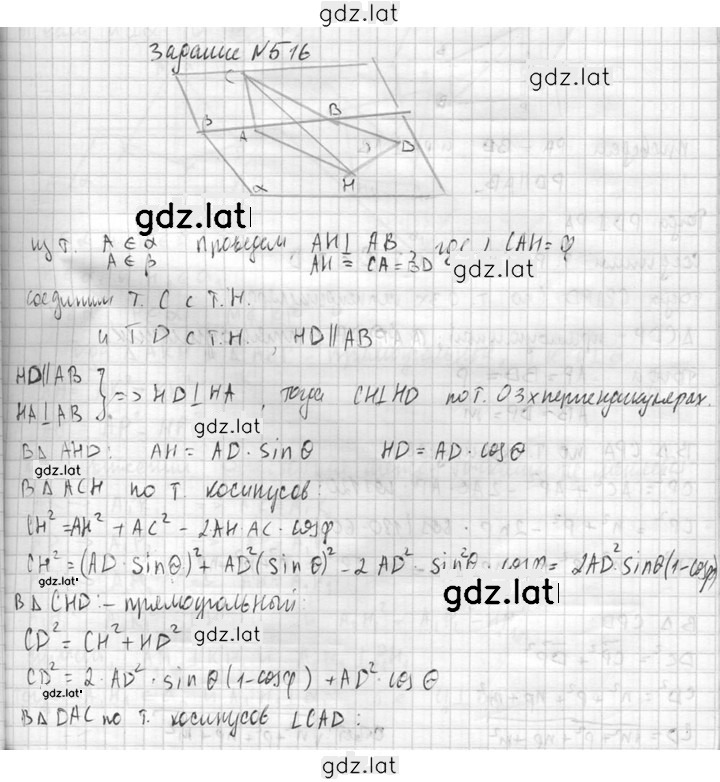 gdz.lat
Задание №516
gdz.lat
C
B
β
A
D
H
α
gdz.lat
из т. A ∈ α проведём AH ⊥ AB, ∠CAH = φ
A ∈ β AH = CA = BD
gdz.lat
соединим т. C с т. H.
и т. D с т. H, HD || AB
HD || AB
HA ⊥ AB } => HD ⊥ HA, тогда CH ⊥ HD по т. о 3х перпендикулярах.
gdz.lat
В Δ AHD: AH = AD · sin θ HD = AD · cos θ
gdz.lat
В Δ ACH по т. косинусов:
CH² = AH² + AC² - 2AH AC · cos φ
CH² = (AD · sin θ)² + AD² (sin θ)² - 2 AD² · sin² θ · cos φ = 2AD² sin θ (1 - cos φ)
gdz.lat
gdz.lat
В Δ CHD: - прямоугольный:
CD² = CH² + HD²
gdz.lat
CD² = 2 · AD² · sin θ (1 - cos φ) + AD² · cos θ
gdz.lat
В Δ DAC по т. косинусов ∠CAD:
gdz.lat